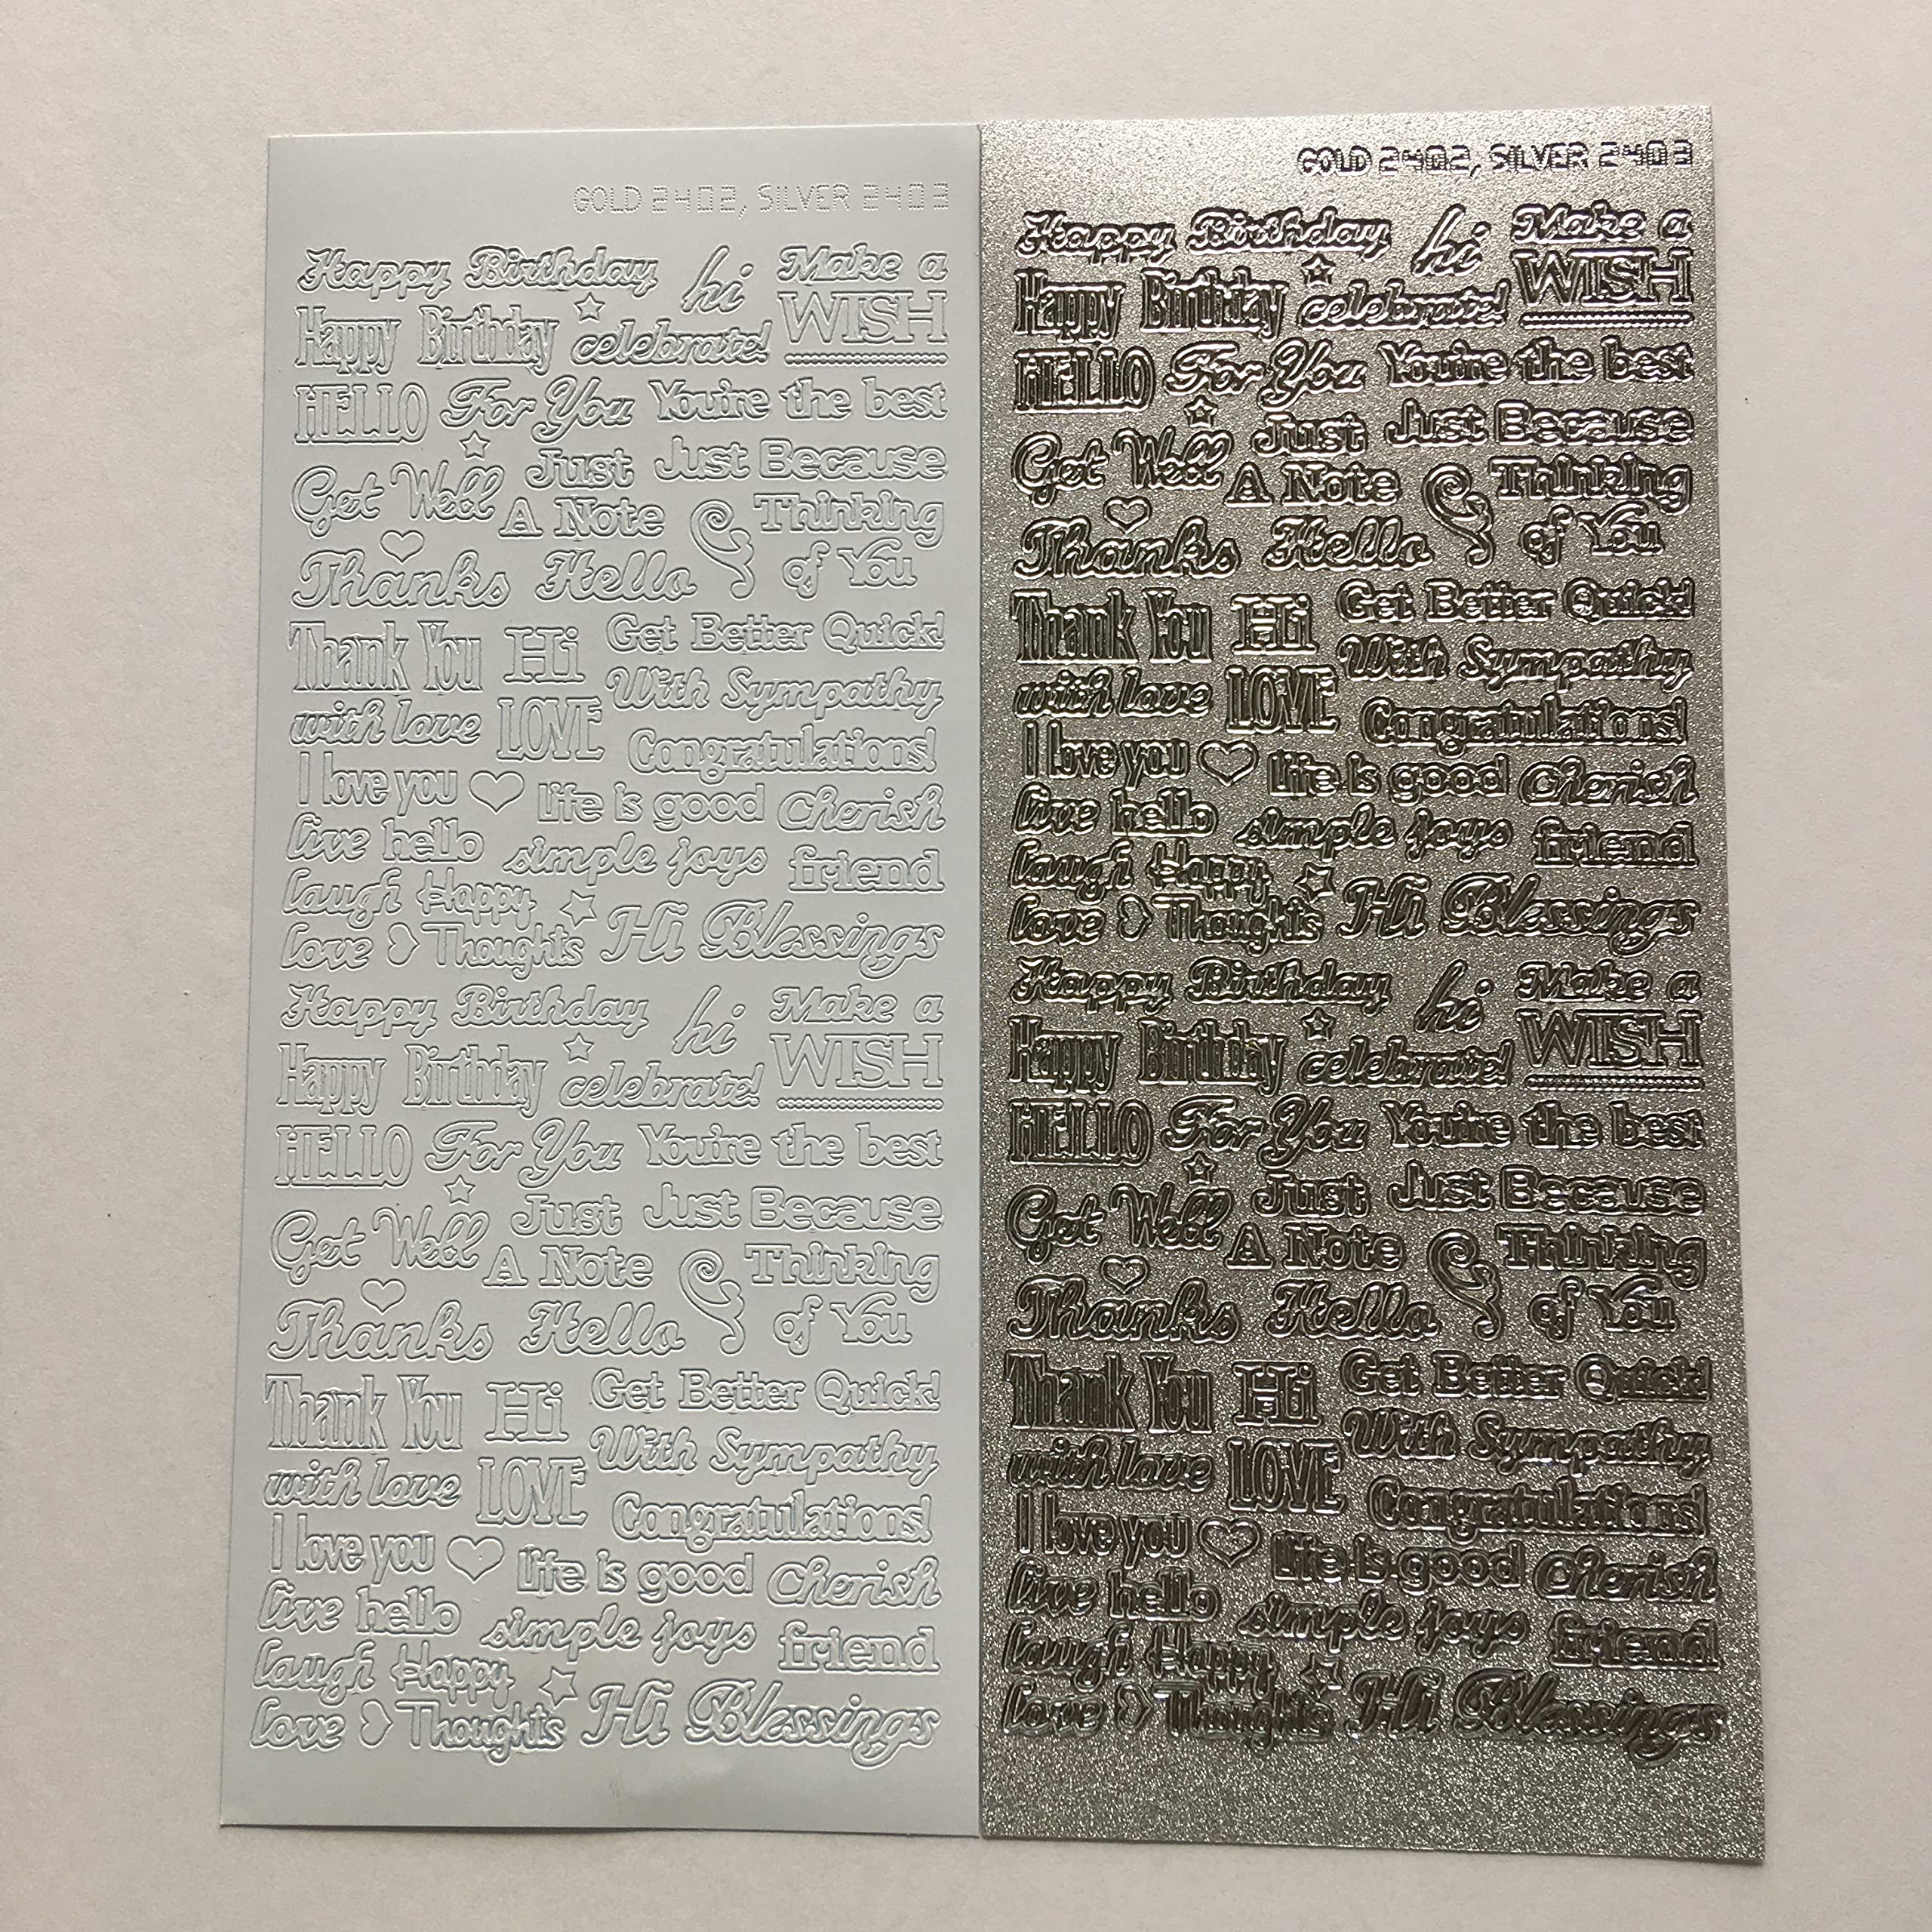 GOLD 2402, SILVER 2403
Happy Birthday hi Make a
WISH
Happy Birthday celebrate!
HELLO For You You're the best
Get Well Just
A Note Just Because
Thanks Hello Thinking
of You
Thank You Hi Get Better Quick!
With Sympathy
with love LOVE Congratulations!
I love you life is good Cherish
live hello simple joys friend
laugh Happy
Thoughts Hi Blessings
love
Happy Birthday hi Make a
WISH
Happy Birthday celebrate!
HELLO For You You're the best
Get Well Just
A Note Just Because
Thanks Hello Thinking
of You
Thank You Hi Get Better Quick!
With Sympathy
with love LOVE Congratulations!
I love you life is good Cherish
live hello simple joys friend
laugh Happy
Thoughts Hi Blessings
love
GOLD 2402, SILVER 2403
Happy Birthday hi Make a
WISH
Happy Birthday celebrate!
HELLO For You You're the best
Get Well Just
A Note Just Because
Thanks Hello Thinking
of You
Thank You Hi Get Better Quick!
With Sympathy
with love LOVE Congratulations!
I love you life is good Cherish
live hello simple joys friend
laugh Happy
Thoughts Hi Blessings
love
Happy Birthday hi Make a
WISH
Happy Birthday celebrate!
HELLO For You You're the best
Get Well Just
A Note Just Because
Thanks Hello Thinking
of You
Thank You Hi Get Better Quick!
With Sympathy
with love LOVE Congratulations!
I love you life is good Cherish
live hello simple joys friend
laugh Happy
Thoughts Hi Blessings
love